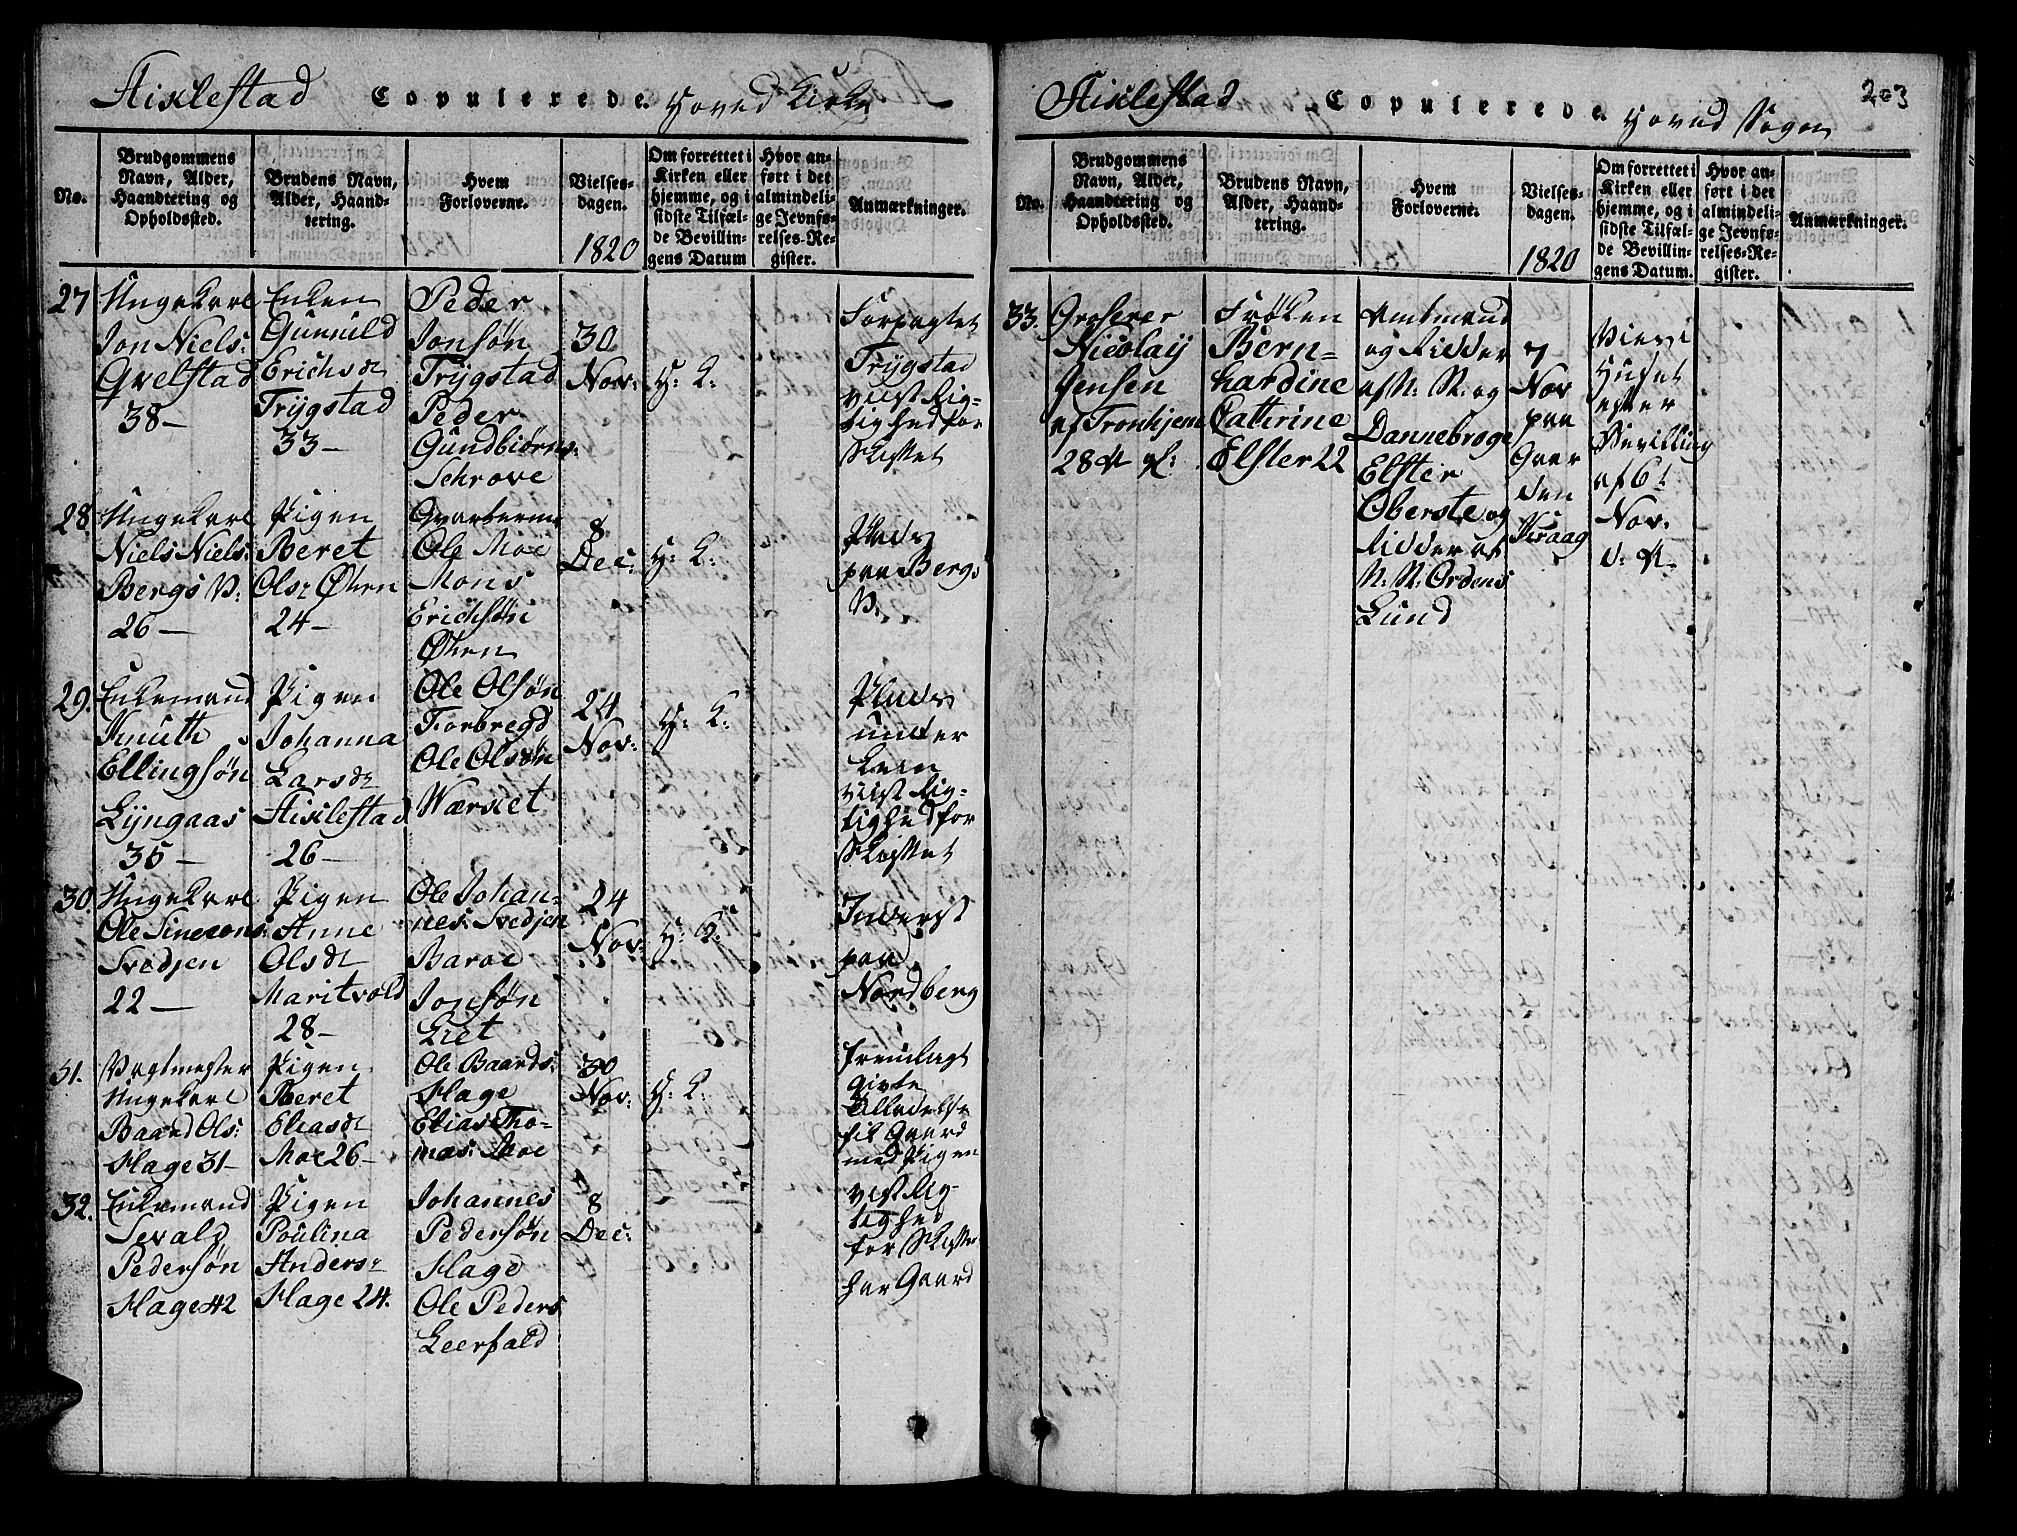 Stiklestad Copulerede. Hoved Kirke
No.
Brudgommens
Navn, Alder,
Haandtering og
Opholdssted.
Brudens Navn,
Alder, Haand-
tering.
Hvem
Forloverne.
Vielses-
dagen.
1820
Om forrettet i
Kirken eller
hjemme, og i
sidste Tilfæl-
de Bevillin-
gens Datum
Hvor an-
ført i det
almindeli-
ge Jevnfø-
relses-Re-
gister.
Anmærkninger.
27
Ungekarl
Jon Niels:
Qvelstad
38 —
Enken
Gunnild
Erichsdr
Trÿgstad
33 —
Peder
Jonsøn
Trÿgstad
Peder
Gundbiørns:
Schrove
30
Nov:
H: K:
Forpagter
Trÿgstad
viist Rig-
tighed for
Skiftet
28.
Ungekarl
Niels Niels:
Bergs V:
26 —
Pigen
Beret
Olsr Øhren
24 —
Qvarteerm
Ole Moe
Mons
Erichsøn
Øhren
8
Dec:
H: K:
Plads
paa Bergs
V:
29.
Enkemand
Knuth
Ellingsøn
Lÿngaas
35 —
Pigen
Johanna
Larsdr
Stiklestad
26 —
Ole Olsøn
Tiorbregd
Ole Olsøn
Wærset
24
Nov:
H: K:
Plads
under
Leen
viist Rig-
tighed for
Skiftet
30.
Ungekarl
Ole Simeons:
Svedjen
22 —
Pigen
Anne
Olsdr
Maritvold
28 —
Ole Johan-
nes: Svedjen
Baroe
Jonsøn
Liet
24
Nov:
H: K:
Inderst
paa
Nordberg
31.
Vagtmester
Ungekarl
Baard Ols:
Hage 31 —
Pigen
Beret
Eliasdr
Moe 26 —
Ole Baards:
Hage
Elias Tho-
mas: Moe
30
Nov:
H: K:
fremlagt
Givte
Tilladelse
fik Gaard
med Pigen
32.
Enkemand
Sevald
Pedersøn
Hage 42
Pigen
Poulina
Andersr
Hage 24.
Johannes
Pedersøn
Hage
Ole Peders
Leerfald
8
Dec:
viist Rig-
tighed
for Skifte
har Gaard
Stiklestad Copulerede. Hoved Sogn
203
No.
Brudgommens
Navn, Alder,
Haandtering og
Opholdssted.
Brudens Navn,
Alder, Haand-
tering.
Hvem
Forloverne.
Vielses-
dagen.
1820
Om forrettet i
Kirken eller
hjemme, og i
sidste Tilfæl-
de Bevillin-
gens Datum.
Hvor an-
ført i det
almindeli-
ge Jevnfø-
relses-Re-
gister.
Anmærkninger.
33.
Groserer
Nicolaÿ
Jensen
af Tronhjem
28 A gl:
Frøken
Bern-
hardine
Cathrine
Elster 22
Amtmand
og Ridder
af N: St: og
Dannebroge
Elster
Oberste og
Ridder af
N: St: Ordens
Lund
7
Nov
paa
Gaar
den
Kraag
Viet i
Huset
efter
Bevilling
af 6t
Nov.
d: A.